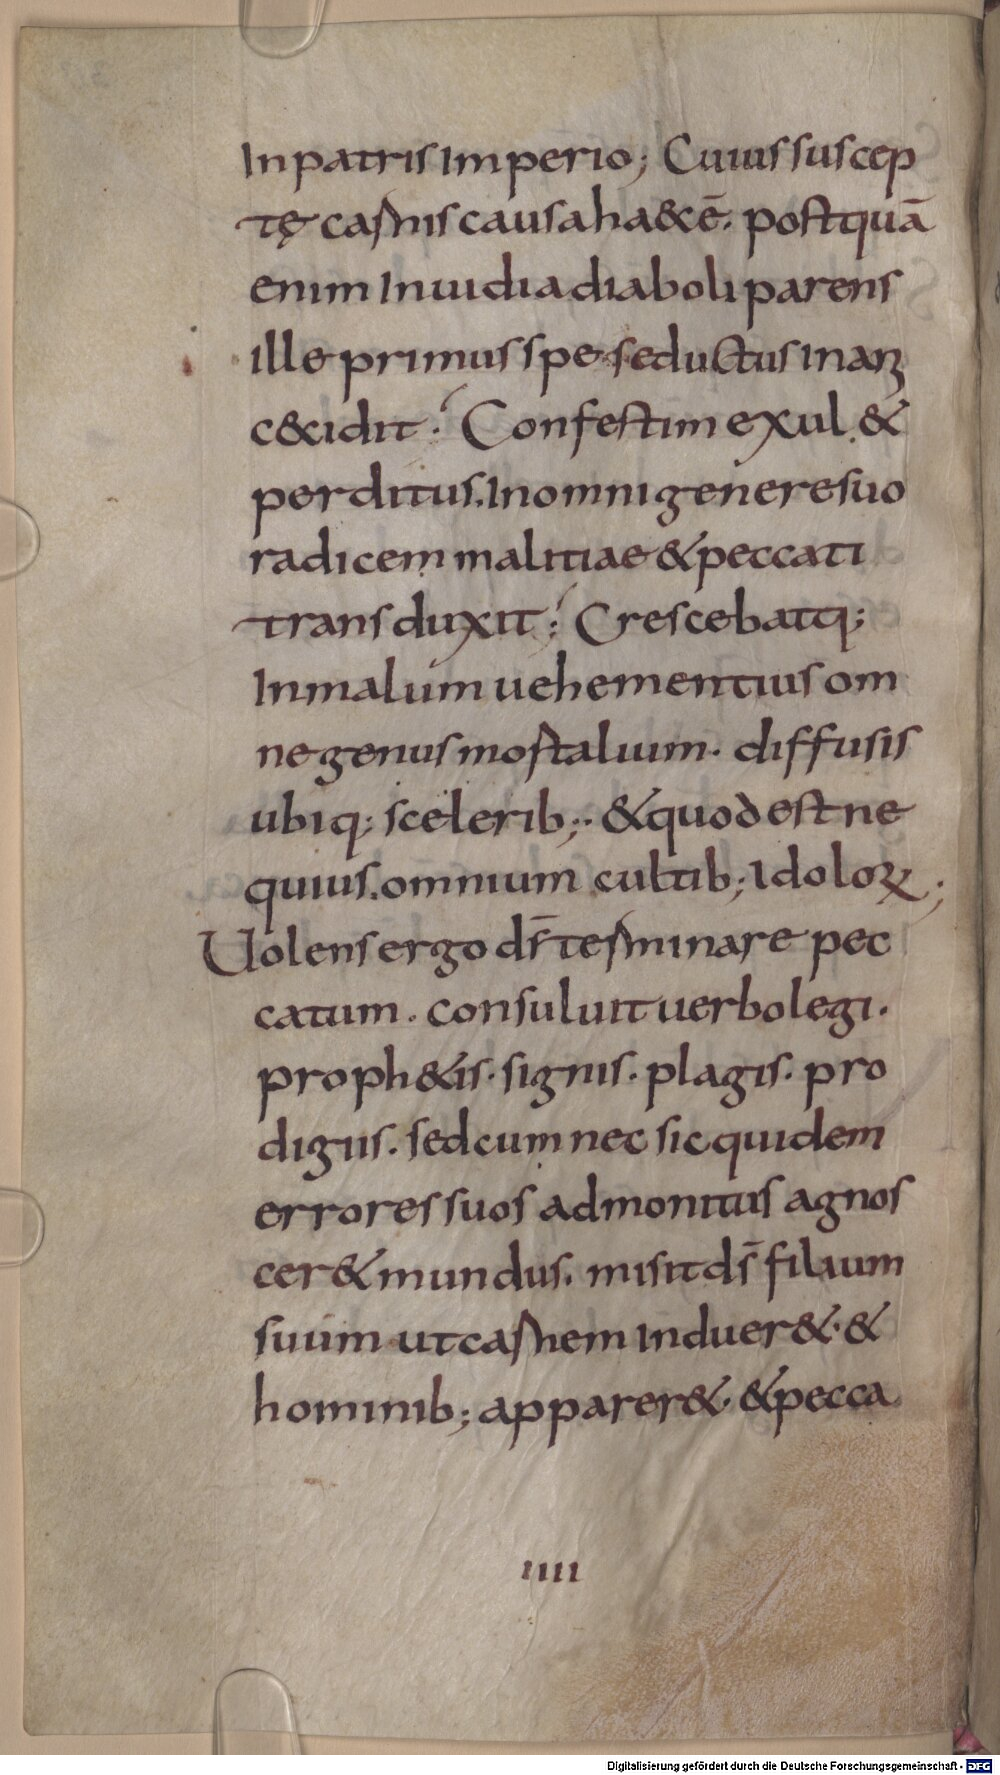 In patris Imperio; Cuius suscep
tę carnis causa ha&c ē. postquā
enim Inuidia diaboli parens
ille primus spe seductus inanı
c&idit; Confestim exul &
perditus. In omni genere suo
radicem malitiae & peccati
transduxit; Crescebatq;
In malum uehementius om
ne genus mortalium. diffusis
ubiq; scelerib;. & quod est ne
quius. omnium cultib; Idoloꝝ;
Uolens ergo ds̄ terminare pec
catum. consuluit uerbo legi.
proph&is. signis. plagis. pro
digiis. sed cum nec sic quidem
errores suos admonitus agnos
cer& mundus. misit ds̄ filium
suum ut carnem induer&. &
hominib; apparer&. & pecca
IIII
Digitalisierung gefördert durch die Deutsche Forschungsgemeinschaft - DFG